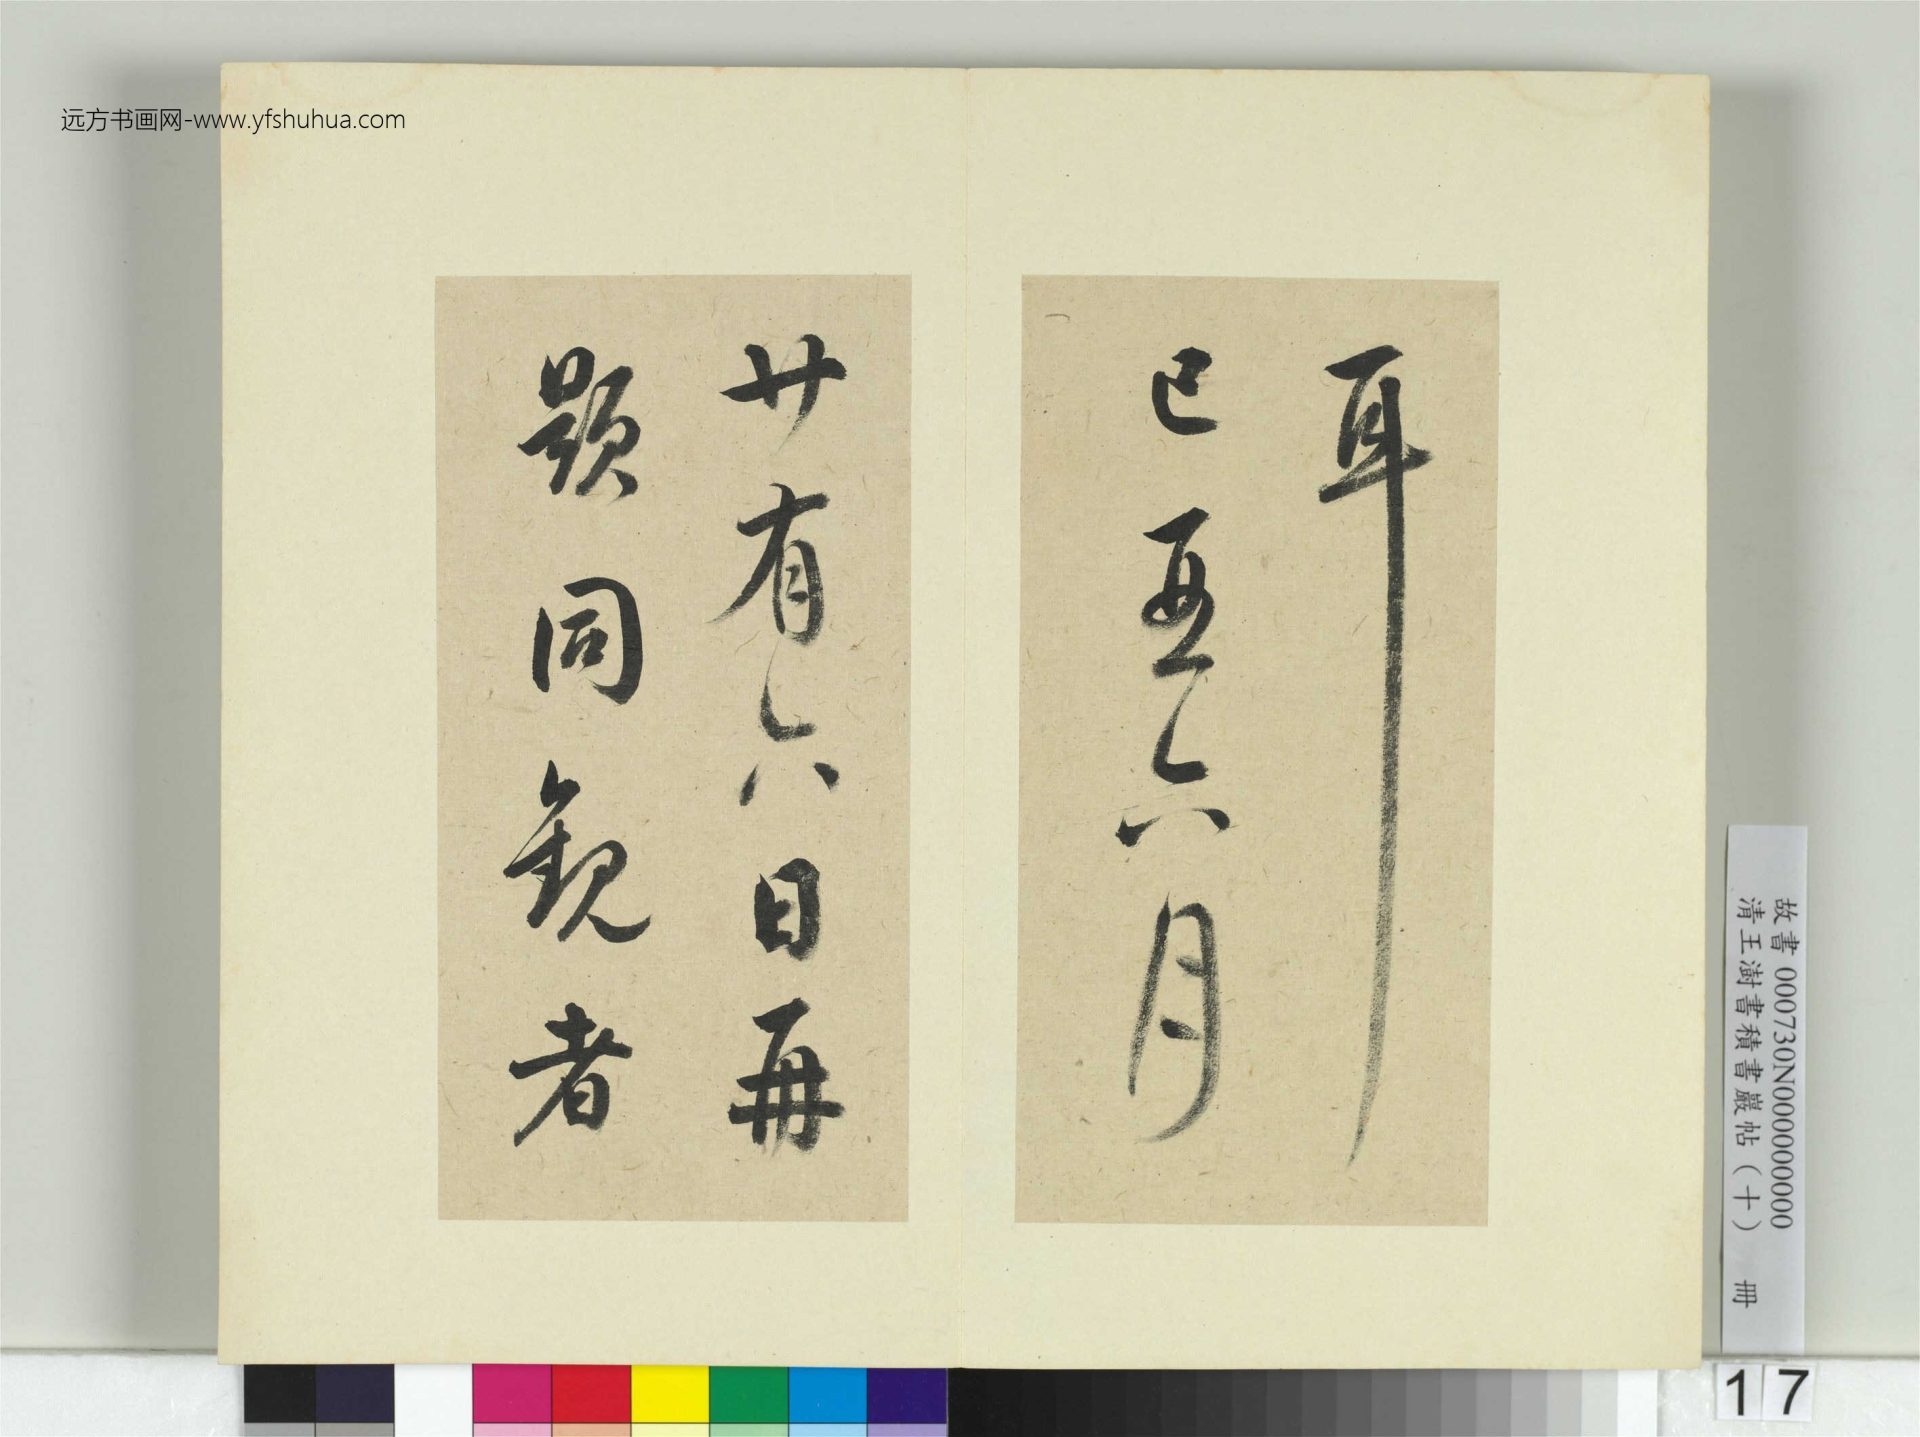 远方书画网-www.yfshuhua.com
耳
己酉六月
廿有六日再
題同觀者
故書 000730N000000000
清王澍書積書巖帖（十） 冊
17